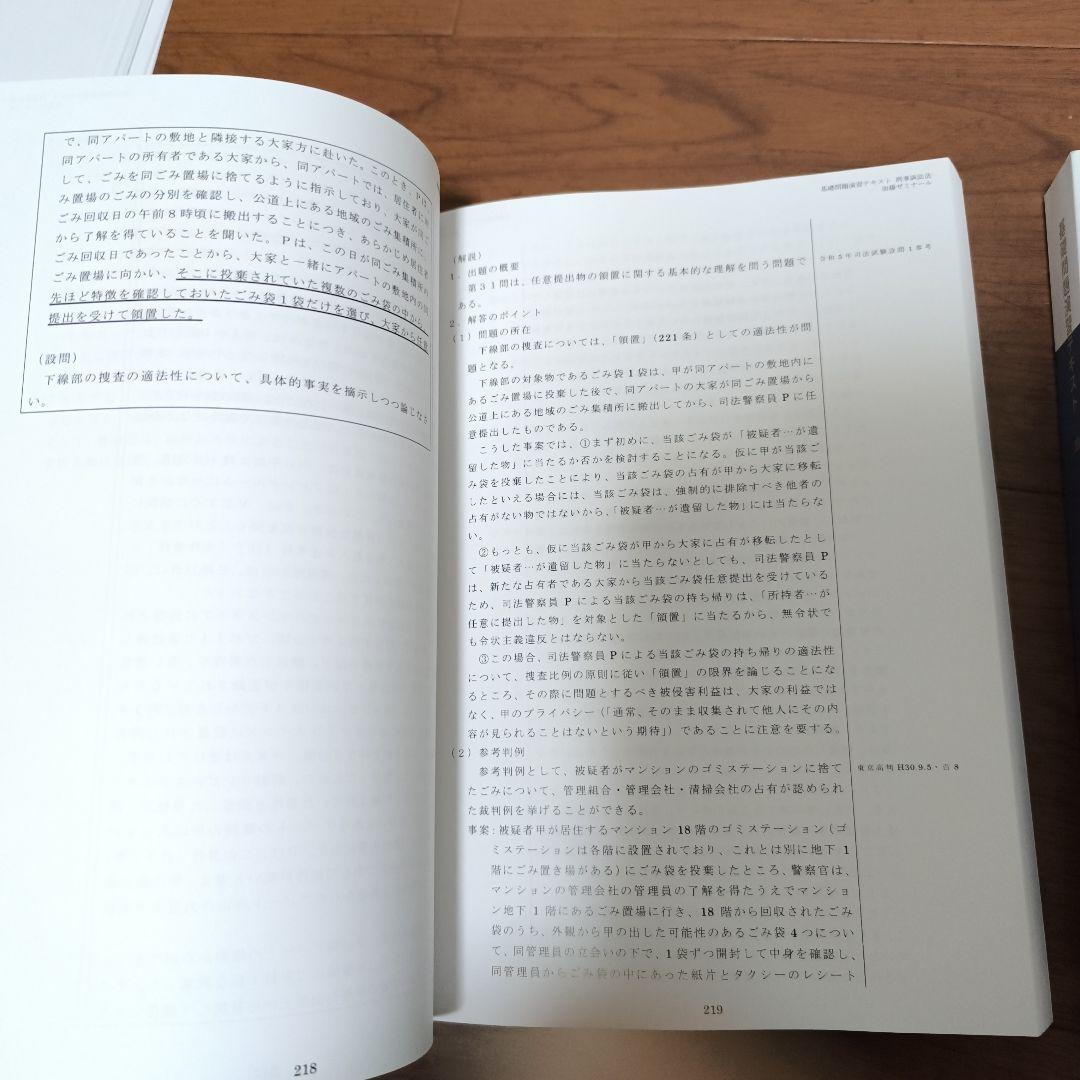 で、同アパートの敷地と隣接する大家方に赴いた。このとき、Pは、
同アパートの所有者である大家から、同アパートでは、居住者に対
して、ごみを同ごみ置場に捨てるように指示しており、大家が同ご
み置場のごみの分別を確認し、公道上にある地域のごみ集積所に、
ごみ回収日の午前8時頃に搬出することにつき、あらかじめ居住者
から了解を得ていることを聞いた。Pは、この日が同ごみ集積所の
ごみ回収日であったことから、大家と一緒にアパートの敷地内の同
ごみ置場に向かい、そこに投棄されていた複数のごみ袋の中から、
先ほど特徴を確認しておいたごみ袋1袋だけを選び、大家から任意
提出を受けて領置した。
(設問)
下線部の捜査の適法性について、具体的事実を摘示しつつ論じなさ
い。
218
基礎問題演習テキスト 刑事訴訟法
加藤ゼミナール
(解説)
1.出題の概要
第31問は、任意提出物の領置に関する基本的な理解を問う問題で
ある。
令和5年司法試験設問1参考
2.解答のポイント
(1)問題の所在
下線部の捜査については、「領置」(221条)としての適法性が問
題となる。
下線部の対象物であるごみ袋1袋は、甲が同アパートの敷地内に
あるごみ置場に投棄した後で、同アパートの大家が同ごみ置場から
公道上にある地域のごみ集積所に搬出してから、司法警察員Pに任
意提出したものである。
こうした事案では、①まず初めに、当該ごみ袋が「被疑者…が遺
留した物」に当たるか否かを検討することになる。仮に甲が当該ご
み袋を投棄したことにより、当該ごみ袋の占有が甲から大家に移転
したといえる場合には、当該ごみ袋は、強制的に排除すべき他者の
占有がない物ではないから、「被疑者…が遺留した物」には当たらな
い。
②もっとも、仮に当該ごみ袋が甲から大家に占有が移転したとし
て「被疑者…が遺留した物」に当たらないとしても、司法警察員P
は、新たな占有者である大家から当該ごみ袋任意提出を受けている
ため、司法警察員Pによる当該ごみ袋の持ち帰りは、「所持者…が
任意に提出した物」を対象とした「領置」に当たるから、無令状で
も令状主義違反とはならない。
③この場合、司法警察員Pによる当該ごみ袋の持ち帰りの適法性
について、捜査比例の原則に従い「領置」の限界を論じることにな
るところ、その際に問題とするべき被侵害利益は、大家の利益では
なく、甲のプライバシー(「通常、そのまま収集されて他人にその内
容が見られることはないという期待」)であることに注意を要する。
(2)参考判例
参考判例として、被疑者がマンションのゴミステーションに捨て
たごみについて、管理組合・管理会社・清掃会社の占有が認められ
た裁判例を挙げることができる。
東京高判H30.9.5・百8
事案:被疑者甲が居住するマンション18階のゴミステーション(ゴ
ミステーションは各階に設置されており、これとは別に地下1
階にごみ置き場がある)にごみ袋を投棄したところ、警察官は、
マンションの管理会社の管理員の了解を得たうえでマンショ
ン地下1階にあるごみ置場に行き、18階から回収されたごみ
袋のうち、外観から甲の出した可能性のあるごみ袋4つについ
て、同管理員の立会いの下で、1袋ずつ開封して中身を確認し、
同管理員からごみ袋の中にあった紙片とタクシーのレシート
219